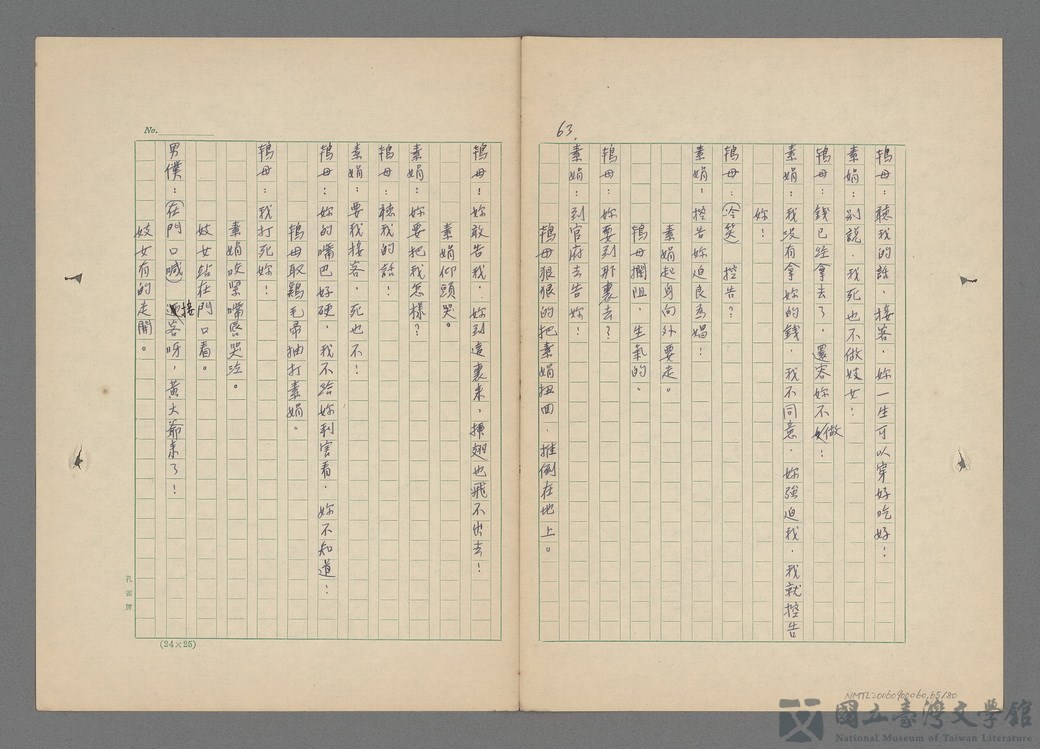 63.
鴇母：聽我的話，接客，妳一生可以穿好吃好！
素娟：別說，我死也不做妓女！
鴇母：錢已經拿去了，還容妳不做！
素娟：我沒有拿妳的錢，我不同意，妳強迫我，我就控告
妳！
鴇母：（冷笑）控告？
素娟：控告妳迫良為娼！
素娟起身向外要走。
鴇母攔阻，生氣的。
鴇母：妳要到那裏去？
素娟：到官府去告妳！
鴇母狠狠的把素娟扭回，推倒在地上。
No.
鴇母！妳敢告我，妳到這裏來，揷翅也飛不出去！
素娟仰頭哭。
素娟：妳要把我怎樣？
鴇母：聽我的話！
素娟：要我接客，死也不！
鴇母：妳的嘴巴好硬，我不給妳利害看，妳不知道！
鴇母取鷄毛帚抽打素娟。
鴇母：我打死妳！
素娟咬緊嘴唇哭泣。
妓女站在門口看。
男僕：（在門口喊）接客呀，黃大爺來了！
妓女有的走開。
孔雀牌
(24×25)
NMTL20060900060.65/80
國立臺灣文學館
National Museum of Taiwan Literature